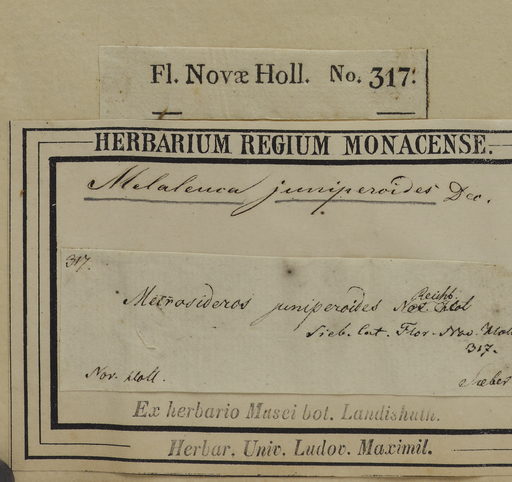 Fl. Novæ Holl. No. 317.
HERBARIUM REGIUM MONACENSE.
Melaleuca juniperoides Dec.
317.
Metrosideros juniperoides Reichb.
Sieb. Cat. Flor. Nov. Holl
317.
Nov. Holl. Sieber
Ex herbario Musei bot. Landishuth.
Herbar. Univ. Ludov. Maximil.